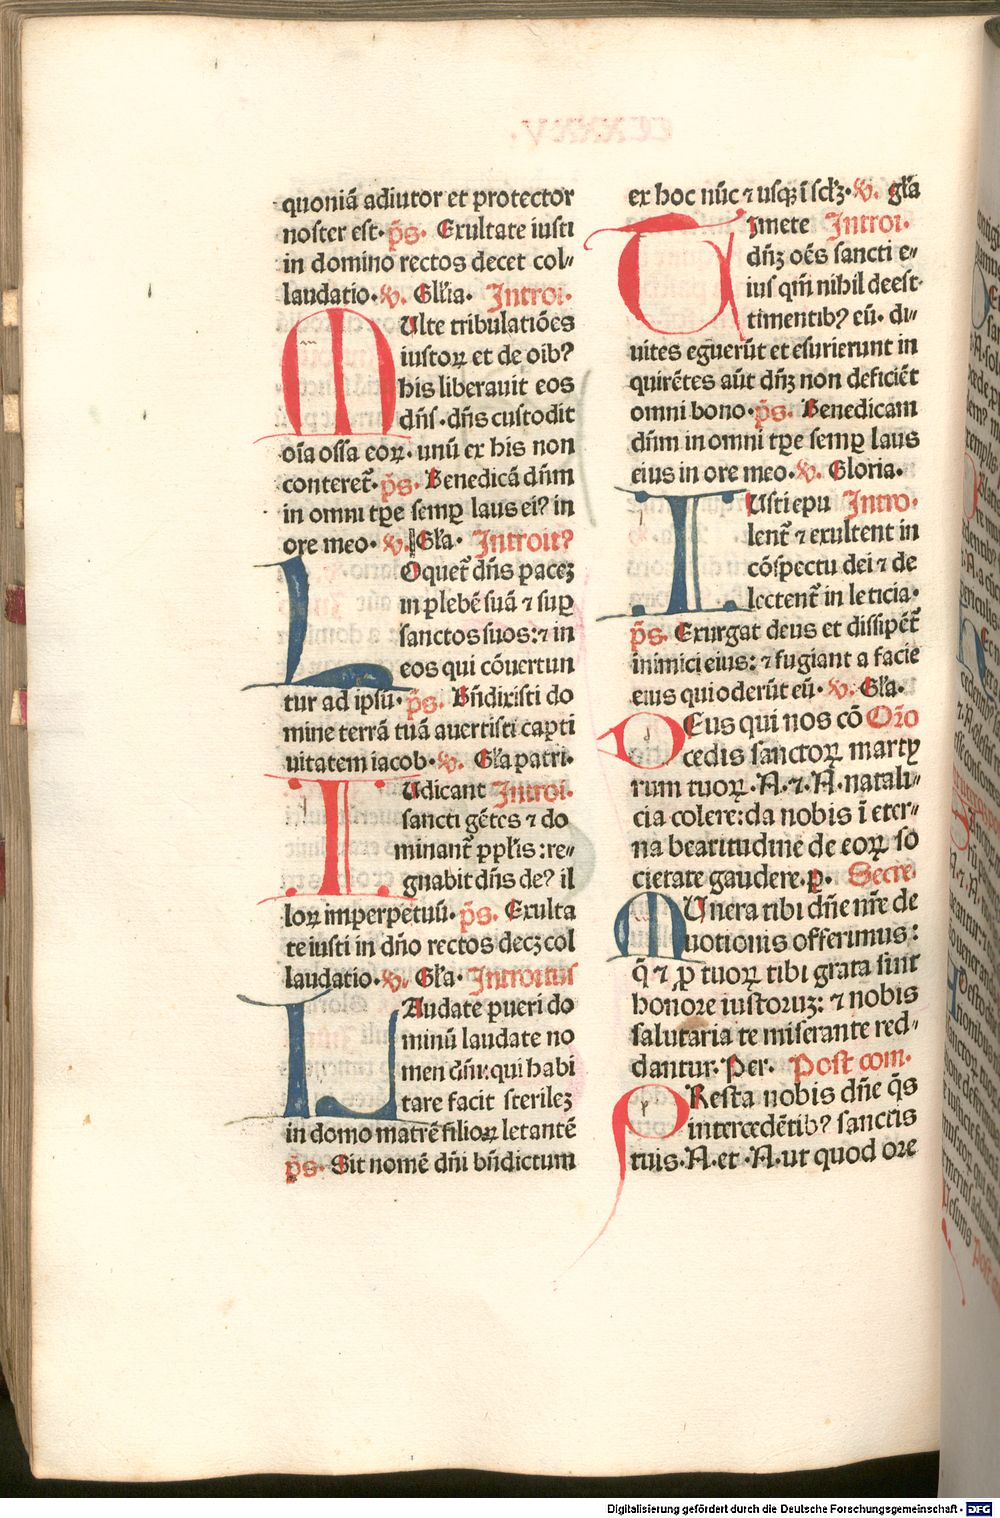 quoniā adiutor et protector
noster est· p̄s· Exultate iusti
in domino rectos decet col⸗
laudatio· v. Gl'ia· Introi·
MUlte tribulatiōes
iustoꝝ et de oib?
his liberauit eos
dn̄s · dn̄s custodit
oīa ossa eoꝝ · unū ex his non
conteret̄· p̄s· Benedicā dn̄m
in omni tp̄e semꝑ laus ei? in
ore meo· v. Gl'a· Introit?
LOquet̄ dn̄s paceꝫ
in plebē suā ⁊ suꝑ
sanctos suos: ⁊ in
eos qui cōuertun
tur ad ipsū· p̄s· Bn̄dixisti do
mine terrā tuā auertisti capti
uitatem iacob· v. Gl'a patri·
IUdicant Introi·
sancti gētes ⁊ do
minant̄ pp̄lis: re⸗
gnabit dn̄s de? il
loꝝ imperpetuū· p̄s· Exulta
te iusti in dn̄o rectos decꝫ col
laudatio· v. Gl'a· Introitus
LAudate pueri do
minū laudate no
men dn̄i: qui habi
tare facit sterileꝫ
in domo matrē filioꝝ letantē
p̄s· Sit nomē dn̄i bn̄dictum
ex hoc nūc ⁊ usqꝫ ī scl'ꝫ· v. gl'a
TImete Introi·
dn̄ꝫ oēs sancti e⸗
ius qm̄ nihil deest
timentib? eū· di⸗
uites eguerūt et esurierunt in
quirētes aūt dn̄ꝫ non deficiēt
omni bono· p̄s· Benedicam
dn̄m in omni tp̄e semꝑ laus
eius in ore meo· v. Gloria·
IUsti epu Intro·
lent̄ ⁊ exultent in
cōspectu dei ⁊ de
lectent̄ in leticia·
p̄s· Exurgat deus et dissipēt̄
inimici eius: ⁊ fugiant a facie
eius qui oderūt eū· v. Gl'a·
DEus qui nos cō Orō
cedis sanctoꝝ martꝝ
rum tuoꝝ · N· ⁊ · N· natali⸗
cia colere: da nobis ī eter⸗
na beatitudine de eoꝝ so
cietate gaudere· p· Secre·
MUnera tibi dn̄e nr̄e de
uotionis offerimus:
q̄ ⁊ ꝓ tuoꝝ tibi grata sint
honore iustoruꝫ: ⁊ nobis
salutaria te miserante red⸗
dantur· Per· Post com·
PResta nobis dn̄e q̄s
intercedētib? sanctis
tuis· N· et · N· ut quod ore
Digitalisierung gefördert durch die Deutsche Forschungsgemeinschaft - DFG